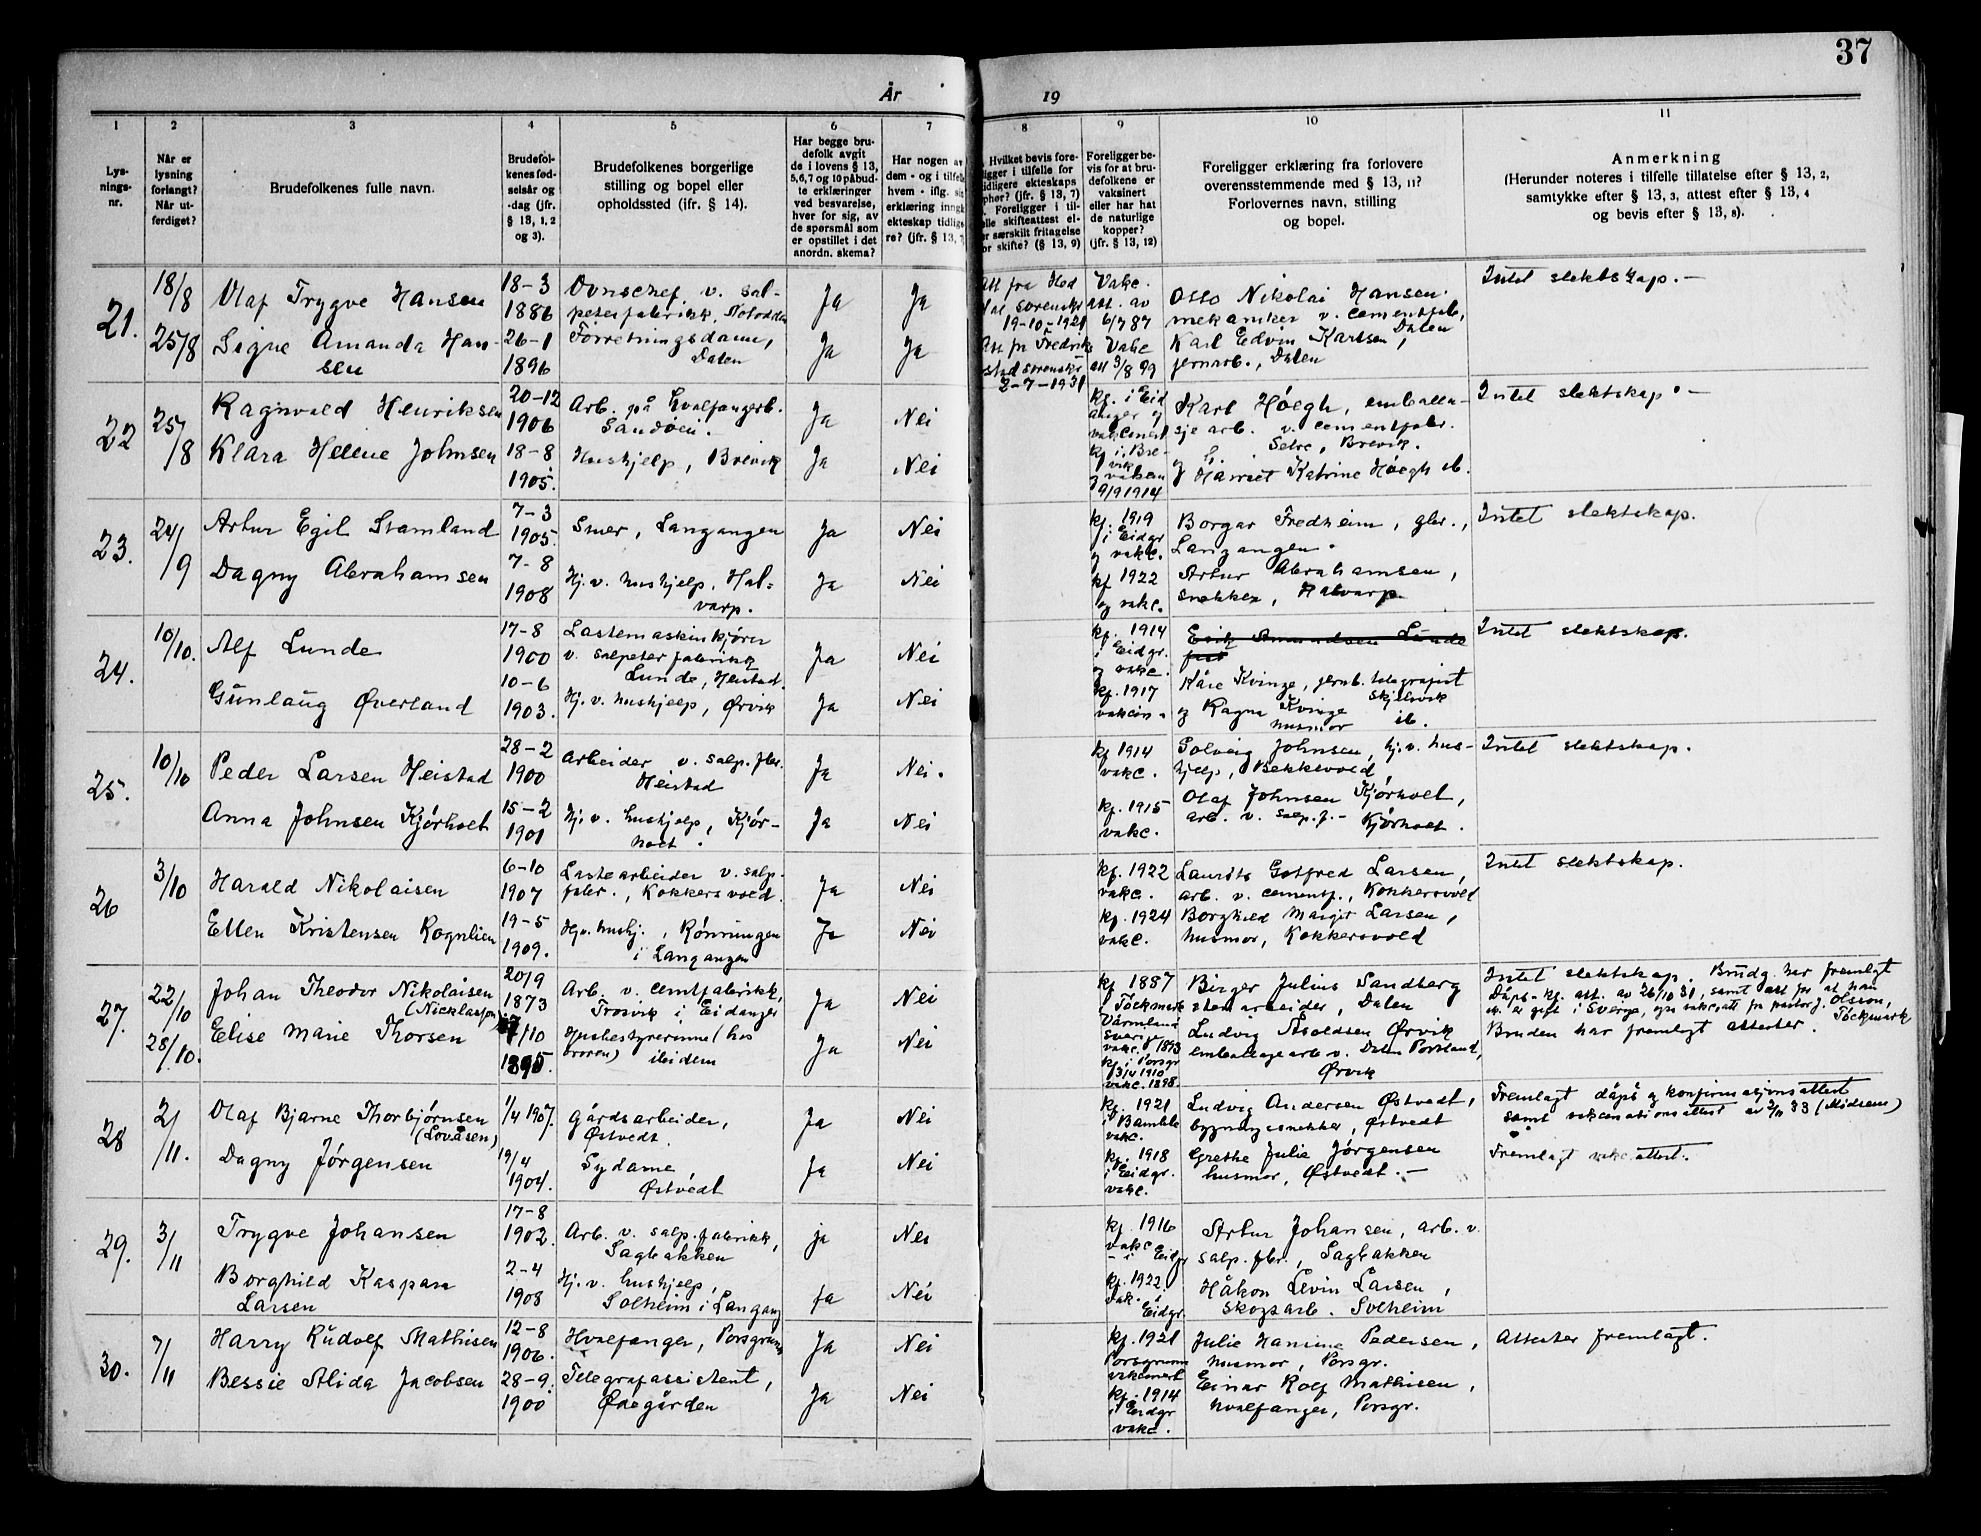 37
År
19
1
2
3
4
5
6
7
8
9
10
11
Lys-
nings-
nr.
Når er
lysning
forlangt?
Når ut-
ferdiget?
Brudefolkenes fulle navn.
Brudefol-
kenes fød-
selsår og
-dag (jfr.
§ 13, 1, 2
og 3).
Brudefolkenes borgerlige
stilling og bopel eller
opholdssted (ifr. § 14).
Har begge bru-
defolk avgit
de i lovens § 13,
5,6,7 og 10 påbud-
te erklæringer
ved besvarelse,
hver for sig, av
de spørsmål som
er opstillet i det
anordn. skema?
Har nogen av
dem - og i tilfelle
hvem - iflg. sin
erklæring inngå
ekteskap tidlige-
re? (jfr. § 13, 7
Hvilket bevis fore-
ligger i tilfelle for
tidligere ekteskaps
ophør? (jfr. § 13, 7)
Foreligger i til-
felle skifteattest el-
er særskilt fritagelse
for skifte? (§ 13, 9)
Foreligger be-
vis for at bru-
defolkene er
vaksinert
eller har hat
de naturlige
kopper?
(jfr. § 13, 12)
Foreligger erklæring fra forlovere
overensstemmende med § 13, 11?
Forlovernes navn, stilling
og bopel.
Anmerkning
(Herunder noteres i tilfelle tillatelse efter § 13, 2,
samtykke efter § 13, 3, attest efter § 13, 4
og bevis efter § 13, 8).
21.
18/8
25/8
Olaf Trygve Hansen
Signe Amanda Han-
sen
18-3
1886
26-1
1896
Ovnschef v. sal-
peterfabrikk, Notodden
Forretningsdame,
Dalen
Ja
Ja
Ja
Ja
Att fra Hed
dal sorenskr
19-10-1921
Att fr Fredrik
stad sorenskr
2-7-1931
Vakc.
att. av
6/7 87
Vakc
att 3/8 99
Otto Nikolai Hansen
mekaniker v. cementfab,
Dalen
Karl Edvin Karlsen,
jernarb., Dalen
Intet slektskap.-
22
25/8
Ragnvald Henriksen
Klara Helene Johnsen
20-12
1906
18-8
1905
Arb. på hvalfangerb.
Sandøen.
Hushjelp, Brevik
Ja
Ja
Nei
Nei
kf. i Eid
anger og
vakcinert
kf i Bre-
vik
og vakcin
9/9 1914
Karl Høegh, emballa-
sje arb. v. cementfabr.
Setre, Brevik.
og Harriet Katrine Høegh ib.
Intet slektskap.-
23.
24/9
Artur Egil Stamland
Dagny Abrahamsen
7-3
1905.
7-8
1908
Smer, Langangen
Hj. v. hushjelp, Hal-
varp.
Ja
Ja
Nei
Nei
kf. 1919
i Eidgr
og vakc.
kf 1922
og vakc.
Borgar Fredheim, gbr.,
Langangen.
Artur Abrahamsen,
snekker, Halvarp
Intet slektskap.
24.
10/10.
Alf Lunde
Gunlaug Øverland
17-8
1900
10-6
1903.
Lastemaskinkjører
v. salpeterfabrikk
Lunde, Heistad.
Hj. v. hushjelp, Ørvik
Ja
Ja
Nei
Nei
kf. 1914
i Eidgr.
og vakc.
kf. 1917
vakcin.
Erik Amundsen Lunde
Kåre Kvinge, jernb. telegrafist
Skjelsvik
og Ragna Kvinge
husmor ib.
Intet slektskap.
25.
10/10
Peder Larsen Heistad
Anna Johnsen Kjørholt
28-2
1900
15-2
1901
Arbeider v. salp. fbr.
Heistad
Hj. v. hushjelp, Kjør-
holt.
Ja
Ja
Nei.
Nei
kf 1914
vakc.
kf. 1915
vakc.
Solveig Johnsen, hj. v. hus-
hjelp, Bekkevold
Olaf Johnsen Kjørholt,
arb. v. salp. f. - Kjørholt.
Intet slektskap.
26
3/10
Harald Nikolaisen
Ellen Kristensen Rognlien
6-10
1907
19-5
1909.
Lastearbeider v. salp.
fabr., Kokkersvold
Hj. v. hushj., Rønningen
i Langangen
Ja
Ja
Nei
Nei
kf. 1922
vakc.
kf. 1924
vakc.
Laurits Gotfred Larsen,
arb. v. cementf., Kokkersvold
Borghild Margit Larsen,
husmor, Kokkersvold
Intet slektskap.
27.
22/10
28/10.
Johan Theodor Nikolaisen
(Nicklasson)
Elise Marie Thorsen
20/9
1873
7/10
1895
Arb. v. cemtfabrikk,
Trosvik i Eidanger
Husbestyrerinne (hos
broren) ibidem
Ja
Ja
Nei
Nei
kf 1887
Töckmark
Värmland
Sverige
vakc. 1873
kf i Porsgr
3/4 1910
vakc. 1898.
Birger Julius Sandberg
stenarbeider, Dalen
Ludvig Asoldsen Ørvik
emballagearb v. Dalen Portland,
Ørvik
Intet slektskap. Brudg. har fremlagt
Dåps- kf. att. av 26/10 31, samt att for at han
ik. er gift i Sverge, ogs vakc.att fr pastor J. Olsson,
Töckmark
Bruden har fremlagt attester.
28
2/11.
Olaf Bjarne Thorbjørnsen
(Lovåsen)
Dagny Jørgensen
1/4 1907.
19/4
1904.
Gårdsarbeider,
Østvedt.
Sydame
Østvedt
Ja
Ja
Nei
Nei
kf. 1921
i Bamble
vakc.
kf. 1918
i Eidgr.
vakc.
Ludvig Andersen Østvedt,
bygningssnekker, Østvedt
Grethe Julie Jørgensen
husmor, Østvedt.-
Fremlagt dåps og konfirmasjonsattest
samt vakcinationsattest av 2/11 33 (Midsem)
Fremlagt vakc.attest.
29.
3/11
Trygve Johansen
Borghild Kaspara
Larsen
17-8
1902
2-4
1908
Arb. v. salp. fabrikk,
Sagbakken
Hj. v. hushjelp,
Solheim i Langang
ja
ja
Nei
Nei
kf. 1916
vakc
i Eidgr
kf. 1922
vak. i
Eidgr.
Artur Johansen, arb. v.
salp. fbr., Sagbakken
Håkon Levin Larsen,
skogsarb. Solheim
30.
7/11
Harry Rudolf Mathisen
Bessie Alida Jacobsen
12-8
1906.
28-9.
1900
Hvalfanger, Porsgrunn
Telegrafassistent,
Ødegården
Ja
Ja
Nei
Nei
kf. 1921
Porsgrunn
vakcinert
kf. 1914
i Eidgr
vakc.
Julie Hansine Pedersen,
husmor, Porsgr.
Einar Rolf Mathisen,
hvalfanger, Porsgr.
Attester fremlagt.